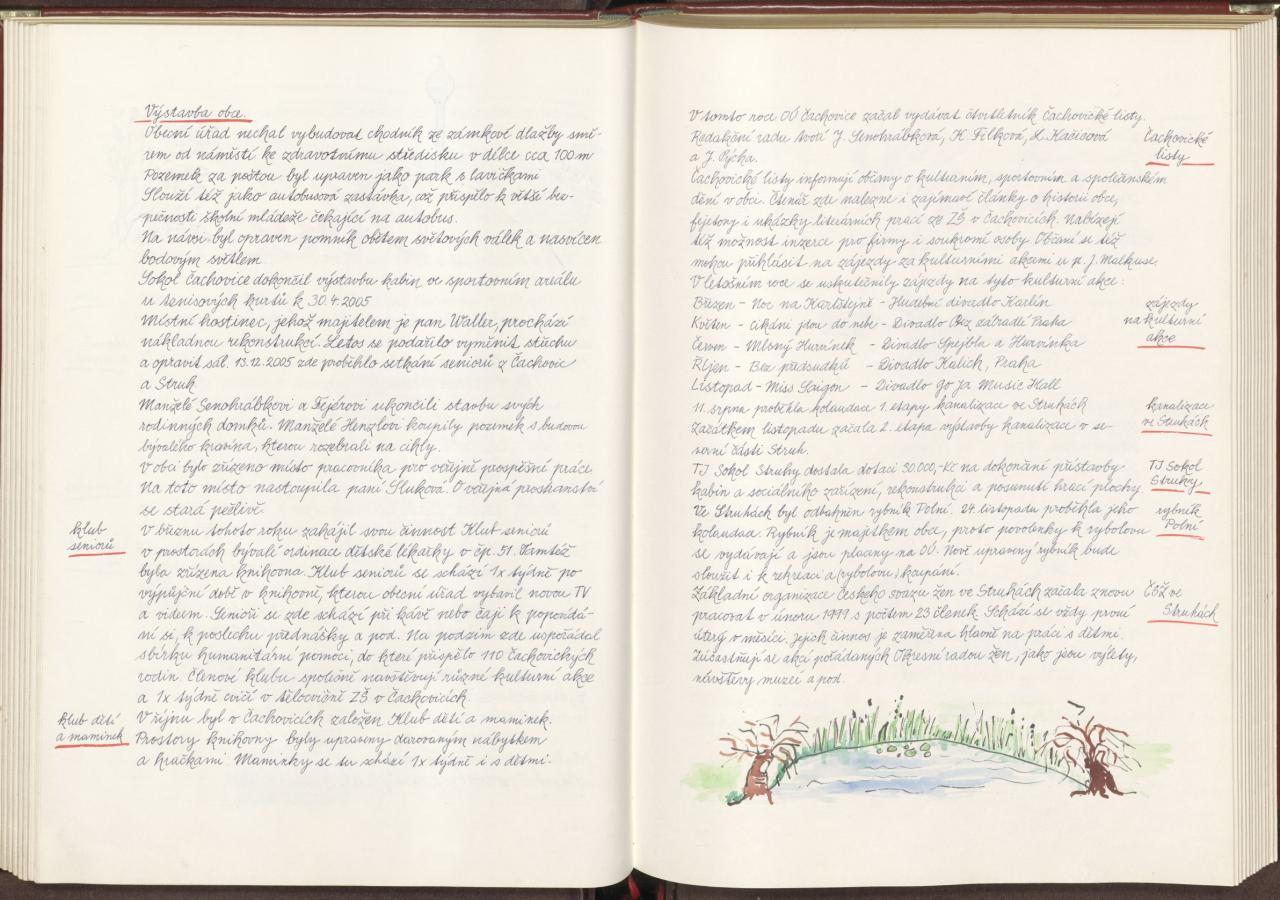 Výstavba obce.
Obecní úřad nechal vybudovat chodník ze zámkové dlažby smě-
rem od náměstí ke zdravotnímu středisku v délce cca 100 m
Pozemek za poštou byl upraven jako park s lavičkami
Slouží též jako autobusová zastávka, což přispělo k větší bez-
pečnosti školní mládeže čekající na autobus.
Na návsi byl opraven pomník obětem světových válek a nasvícen
bodovým světlem
Sokol Čachovice dokončil výstavbu kabin ve sportovním areálu
u tenisových kurtů k 30.4.2005
Místní hostinec, jehož majitelem je pan Waller, prochází
nákladnou rekonstrukcí. Letos se podařilo vyměnit střechu
a opravit sál. 13.12.2005 zde proběhlo setkání seniorů z Čachovic
a Struh
Manželé Senohrábkovi a Fejérovi ukončili stavbu svých
rodinných domků. Manželé Henzlovi koupily pozemek s budovou
bývalého kravína, kterou rozebrali na cihly.
V obci bylo zřízeno místo pracovníka pro veřejně prospěšné práce
Na toto místo nastoupila paní Sluková. O veřejná prostranství
se stará pečlivě.
klub
seniorů
V březnu tohoto roku zahájil svou činnost Klub seniorů
v prostorách bývalé ordinace dětské lékařky v čp. 51. Tamtéž
byla zřízena knihovna. Klub seniorů se schází 1x týdně po
výpůjční době v knihovně, kterou obecní úřad vybavil novou TV
a videem. Senioři se zde schází při kávě nebo čaji k popovídá-
ní si, k poslechu přednášky a pod. Na podzim zde uspořádal
sbírku humanitární pomoci, do které přispělo 110 čachovických
rodin Členové klubu společně navštěvují různé kulturní akce
a 1x týdně cvičí v tělocvičně ZŠ v Čachovicích.
klub dětí
a maminek
V říjnu byl v Čachovicích založen Klub dětí a maminek.
Prostory knihovny byly upraveny darovaným nábytkem
a hračkami. Maminky se tu schází 1x týdně i s dětmi.
V tomto roce OÚ Čachovice začal vydávat čtvrtletník Čachovické listy.
Redakční radu tvoří J. Senohrábková, H. Filková, A. Kačicová
a J. Pýcha.
Čachovické
listy
Čachovické listy informují občany o kulturním, sportovním a společenském
dění v obci. Čtenář zde nalezne i zajímavé články o historii obce,
fejetony i ukázky literárních prací ze ZŠ v Čachovicích. Nabízejí
též možnost inzerce pro firmy i soukromé osoby Občané se též
mohou přihlásit na zájezdy za kulturními akcemi u p. J. Malkuse.
V letošním roce se uskutečnily zájezdy na tyto kulturní akce:
zájezdy
na kulturní
akce
Březen - Noc na Karlštejně - Hudební divadlo Karlín
Květen - Cikáni jdou do nebe - Divadlo Bez zábradlí Praha
Červen - Mlsný Hurvínek - Divadlo Spejbla a Hurvínka
Říjen - Bez předsudků - Divadlo Kalich, Praha
Listopad - Miss Saigon - Divadlo Go Ja Music Hall
kanalizace
ve Struhách
11. srpna proběhla kolaudace 1. etapy kanalizace ve Struhách
Začátkem listopadu začala 2. etapa výstavby kanalizace v se-
verní části Struh.
TJ Sokol
Struhy
TJ Sokol Struhy dostala dotaci 30.000,-Kč na dokončání přístavby
kabin a sociálního zařízení, rekonstrukci a posunutí hrací plochy.
rybník
Polní
Ve Struhách byl odbahněn rybník Polní. 24. listopadu proběhla jeho
kolaudace. Rybník je majetkem obce, proto povolenky k rybolovu
se vydávají a jsou placeny na OÚ. Nově upravený rybník bude
sloužit i k rekreaci a (rybolovu) koupání.
ČSŽ ve
Struhách
Základní organizace Českého svazu žen ve Struhách začala znovu
pracovat v únoru 1999 s počtem 23 členek. Schází se vždy první
úterý v měsíci. Jejich činnos je zaměřena hlavně na práci s dětmi.
Zúčastňují se akcí pořádaných Okresní radou žen, jako jsou výlety,
návštěvy muzeí a pod.